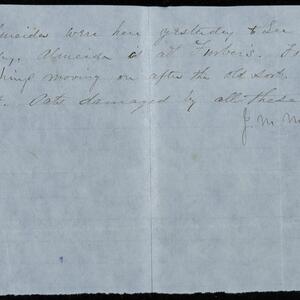 lmeidas were here yesterday to see
Almeida is at Forbers.
hing moving on after the old sort.
Oats damaged by all these
J. M. M